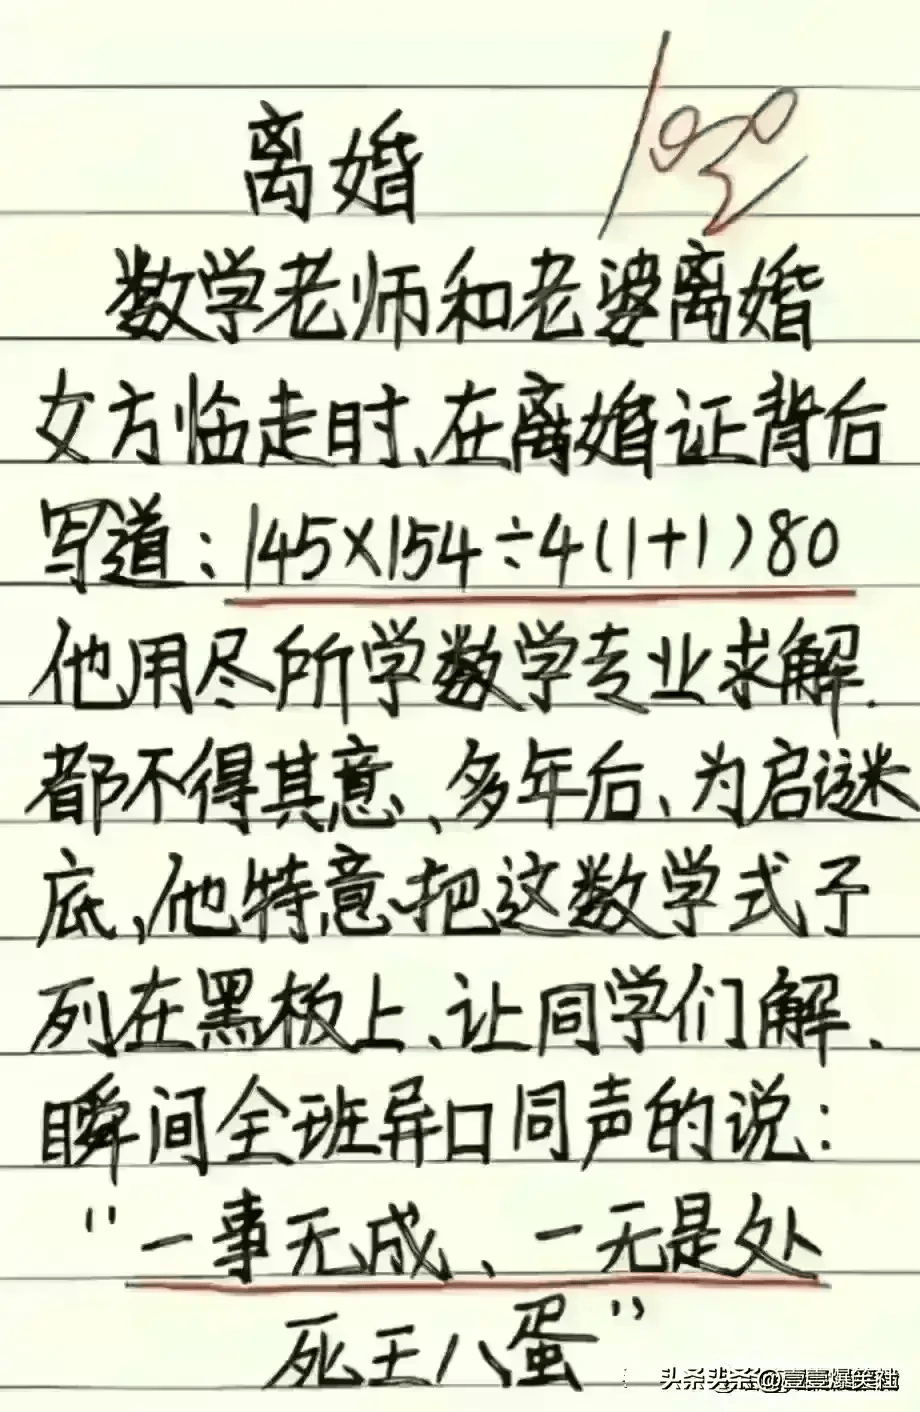 离婚
数学老师和老婆离婚
女方临走时、在离婚证背后
写道：145×154÷4(1+1)80
他用尽所学数学专业求解.
都不得其意、多年后、为启谜
底、他特意把这数学式子
列在黑板上、让同学们解.
瞬间全班异口同声的说：
“一事无成、一无是处
死王八蛋”
头条头条@壹壹爆笑社